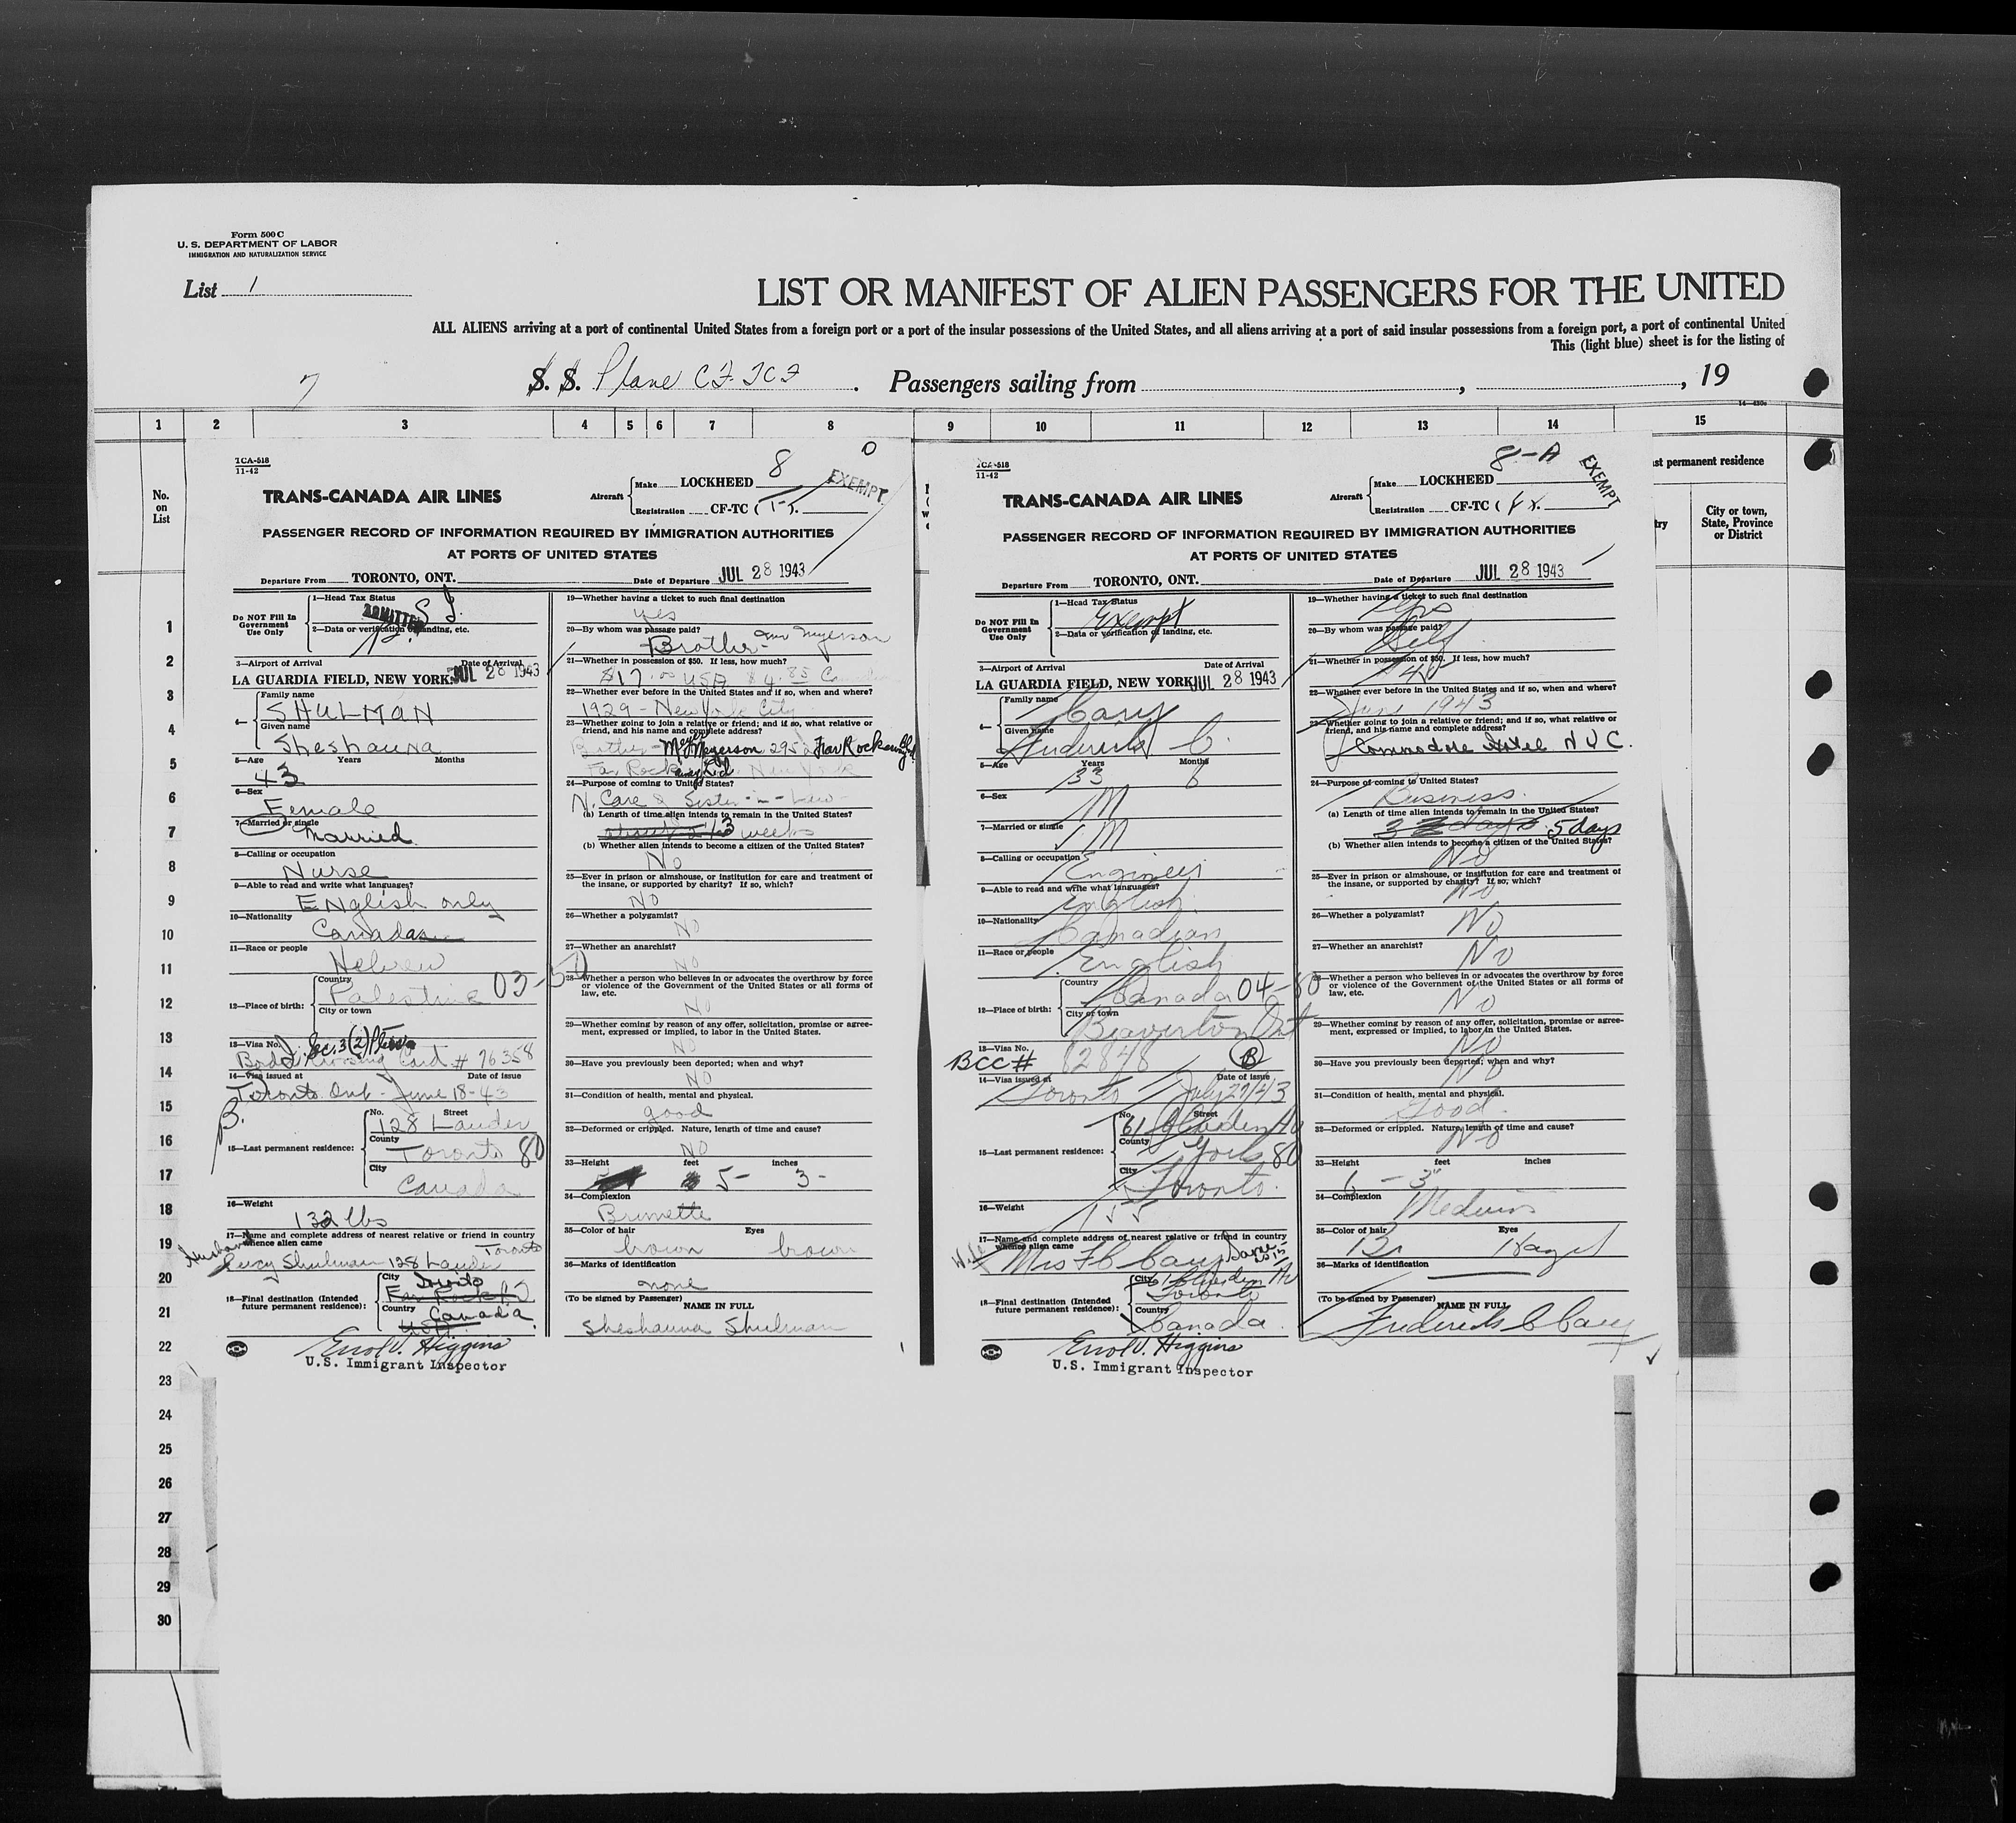 Form 500 C
U. S. DEPARTMENT OF LABOR
IMMIGRATION AND NATURALIZATION SERVICE
List 1
LIST OR MANIFEST OF ALIEN PASSENGERS FOR THE UNITED
ALL ALIENS arriving at a port of continental United States from a foreign port or a port of the insular possessions of the United States, and all aliens arriving at a port of said insular possessions from a foreign port, a port of continental United
This (light blue) sheet is for the listing of
7
S. S. Plane CF-TCF . Passengers sailing from , , 19
1 2 3 4 5 6 7 8 9 10 11 12 13 14 15
No. on List
st permanent residence
try
City or town, State, Province or District
1
2
3
4
5
6
7
8
9
10
11
12
13
14
15
16
17
18
19
20
21
22
23
24
25
26
27
28
29
30
TCA-518
11-42
8
0
EXEMPT
TRANS-CANADA AIR LINES
Aircraft
Make LOCKHEED
Registration CF-TC (
PASSENGER RECORD OF INFORMATION REQUIRED BY IMMIGRATION AUTHORITIES
AT PORTS OF UNITED STATES
Departure From TORONTO, ONT. Date of Departure JUL 28 1943
Do NOT Fill In Government Use Only
1—Head Tax Status
ADMITTED
2—Data or verification of landing, etc.
3—Airport of Arrival Date of Arrival
LA GUARDIA FIELD, NEW YORK JUL 28 1943
4—
Family name
SHULMAN
Given name
Sheshauna
5—Age Years Months
43
6—Sex
Female
7—Married or single
Married
8—Calling or occupation
Nurse
9—Able to read and write what languages?
English only
10—Nationality
Canadas
11—Race or people
Hebrew
12—Place of birth:
Country
Palestine
City or town
13—Visa No. Sec. 3(2)
Crossing Card # 76358
14—Visa issued at Date of issue
Toronto Ont - June 18-43
B.
15—Last permanent residence:
No. Street
128 Lauder
County
Toronto 80
City
Canada
16—Weight
132 lbs
17—Name and complete address of nearest relative or friend in country whence alien came
Husband Percy Shulman 128 Lauder Toronto
18—Final destination (Intended future permanent residence):
City
Toronto
Country
Canada
Errol V. Higgins
U.S. Immigrant Inspector
19—Whether having a ticket to such final destination
yes
20—By whom was passage paid?
Brother - Myerson
21—Whether in possession of $50. If less, how much?
$17.00 USA $4.85
22—Whether ever before in the United States and if so, when and where?
1929 - New York City
23—Whether going to join a relative or friend; and if so, what relative or friend, and his name and complete address?
Brother - Meyer Meyerson 2952 Far Rockaway Bld
New York
24—Purpose of coming to United States?
Care Sister-in-Law
(a) Length of time alien intends to remain in the United States?
3 weeks
(b) Whether alien intends to become a citizen of the United States?
No
25—Ever in prison or almshouse, or institution for care and treatment of the insane, or supported by charity? If so, which?
NO
26—Whether a polygamist?
NO
27—Whether an anarchist?
NO
28—Whether a person who believes in or advocates the overthrow by force or violence of the Government of the United States or all forms of law, etc.
NO
29—Whether coming by reason of any offer, solicitation, promise or agreement, expressed or implied, to labor in the United States.
NO
30—Have you previously been deported; when and why?
NO
31—Condition of health, mental and physical.
good
32—Deformed or crippled. Nature, length of time and cause?
NO
33—Height feet inches
5- 3-
34—Complexion
Brunette
35—Color of hair Eyes
brown brown
36—Marks of identification
none
(To be signed by Passenger)
NAME IN FULL
Sheshauna Shulman
TCA-518
11-42
8-A
EXEMPT
TRANS-CANADA AIR LINES
Aircraft
Make LOCKHEED
Registration CF-TC (
PASSENGER RECORD OF INFORMATION REQUIRED BY IMMIGRATION AUTHORITIES
AT PORTS OF UNITED STATES
Departure From TORONTO, ONT. Date of Departure JUL 28 1943
Do NOT Fill In Government Use Only
1—Head Tax Status
Exempt
2—Data or verification of landing, etc.
3—Airport of Arrival Date of Arrival
LA GUARDIA FIELD, NEW YORK JUL 28 1943
4—
Family name
Cary
Given name
Frederick C.
5—Age Years Months
33 6
6—Sex
M
7—Married or single
M
8—Calling or occupation
Engineer
9—Able to read and write what languages?
English
10—Nationality
Canadian
11—Race or people
English
12—Place of birth:
Country
Canada 04-80
City or town
Beaverton Ont
13—Visa No.
BCC# 82848 B
14—Visa issued at Date of issue
Toronto July 27/43
15—Last permanent residence:
No. Street
61
County
York 80
City
Toronto.
16—Weight
155
17—Name and complete address of nearest relative or friend in country whence alien came
Wife Mrs F C Cary Same as 15-
18—Final destination (Intended future permanent residence):
City
Toronto
Country
Canada.
Errol V. Higgins
U.S. Immigrant Inspector
19—Whether having a ticket to such final destination
Yes
20—By whom was passage paid?
Self
21—Whether in possession of $50. If less, how much?
22—Whether ever before in the United States and if so, when and where?
June 1943
23—Whether going to join a relative or friend; and if so, what relative or friend, and his name and complete address?
Commodore Hotel N Y C.
24—Purpose of coming to United States?
Business.
(a) Length of time alien intends to remain in the United States?
3 days. 5 days
(b) Whether alien intends to become a citizen of the United States?
No
25—Ever in prison or almshouse, or institution for care and treatment of the insane, or supported by charity? If so, which?
No
26—Whether a polygamist?
No
27—Whether an anarchist?
No
28—Whether a person who believes in or advocates the overthrow by force or violence of the Government of the United States or all forms of law, etc.
No
29—Whether coming by reason of any offer, solicitation, promise or agreement, expressed or implied, to labor in the United States.
No
30—Have you previously been deported; when and why?
No
31—Condition of health, mental and physical.
Good.
32—Deformed or crippled. Nature, length of time and cause?
No
33—Height feet inches
6 - 3"
34—Complexion
Medium
35—Color of hair Eyes
Br Hazel
36—Marks of identification
(To be signed by Passenger)
NAME IN FULL
Frederick C Cary